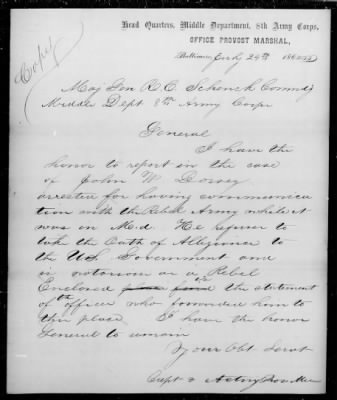 Copy
Head Quarters, Middle Department, 8th Army Corps,
OFFICE PROVOST MARSHAL,
Baltimore, July 24th 1863
Maj Gen R. C. Schenck Commdg
Middle Dept 8th Army Corps
General
I have the
honor to report in the case
of John W. Dorsey
arrested for having communica
tion with the Rebel Army while it
was in Md. He refuses to
take the Oath of Allegiance to
the U.S. Government and
is notorious as a Rebel
Enclosed is the statement
of the officer who forwarded him to
this place. I have the honor
General to remain
Your Obt Servt
Capt & Acting Prov Mar